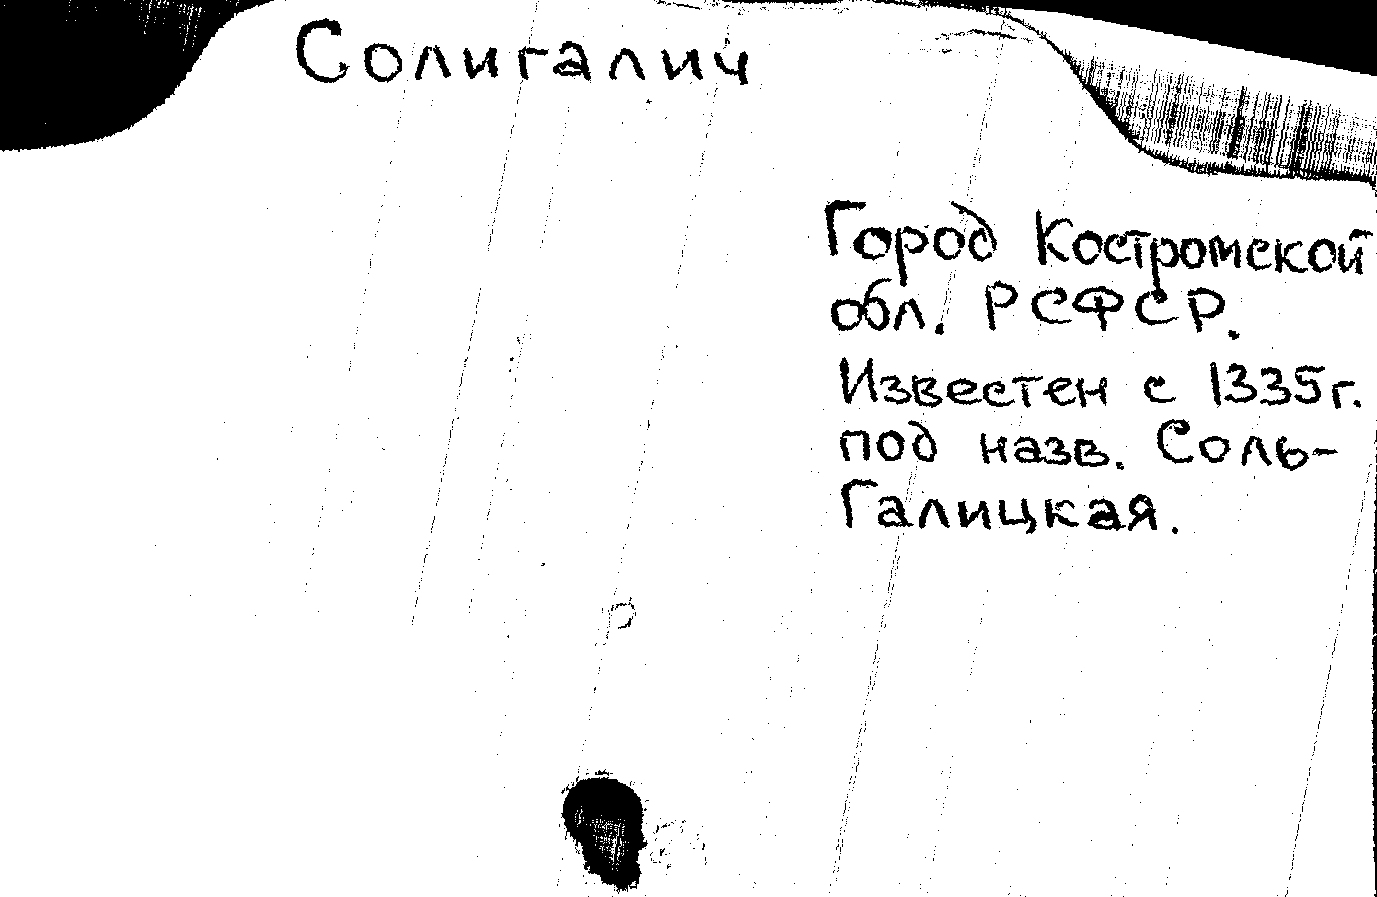 Солигалич
Город Костромской
обл. РСФСР.
Известен с 1335г.
под назв. Соль-
Галицкая.